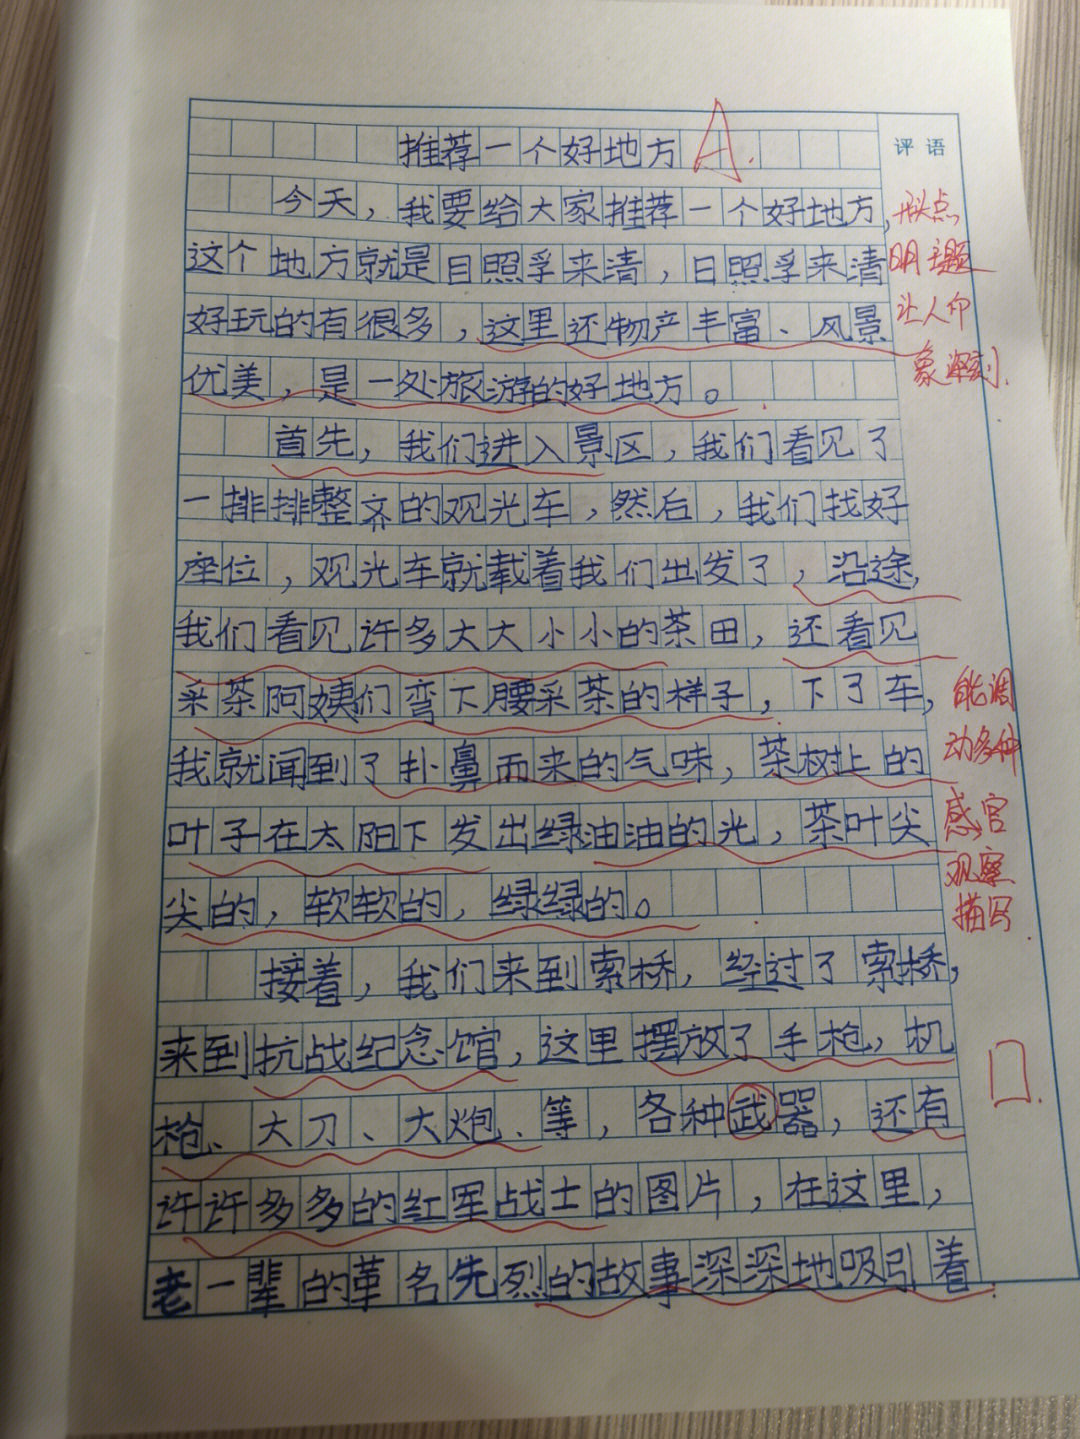 推荐一个好地方 A.
评语
今天，我要给大家推荐一个好地方，
这个地方就是日照孚来清，日照孚来清
好玩的有很多，这里还物产丰富、风景
优美，是一处旅游的好地方。
开头点
明主题
让人印
象深刻.
首先，我们进入景区，我们看见了
一排排整齐的观光车，然后，我们找好
座位，观光车就载着我们出发了，沿途，
我们看见许多大大小小的茶田，还看见
采茶阿姨们弯下腰采茶的样子，下了车，
我就闻到了扑鼻而来的气味，茶树上的
叶子在太阳下发出绿油油的光，茶叶尖
尖的，软软的，绿绿的。
能调
动多种
感官
观察
描写
接着，我们来到索桥，经过了索桥，
来到抗战纪念馆，这里摆放了手枪，机
枪、大刀、大炮、等，各种武器，还有
许许多多的红军战士的图片，在这里，
老一辈的革名先烈的故事深深地吸引着